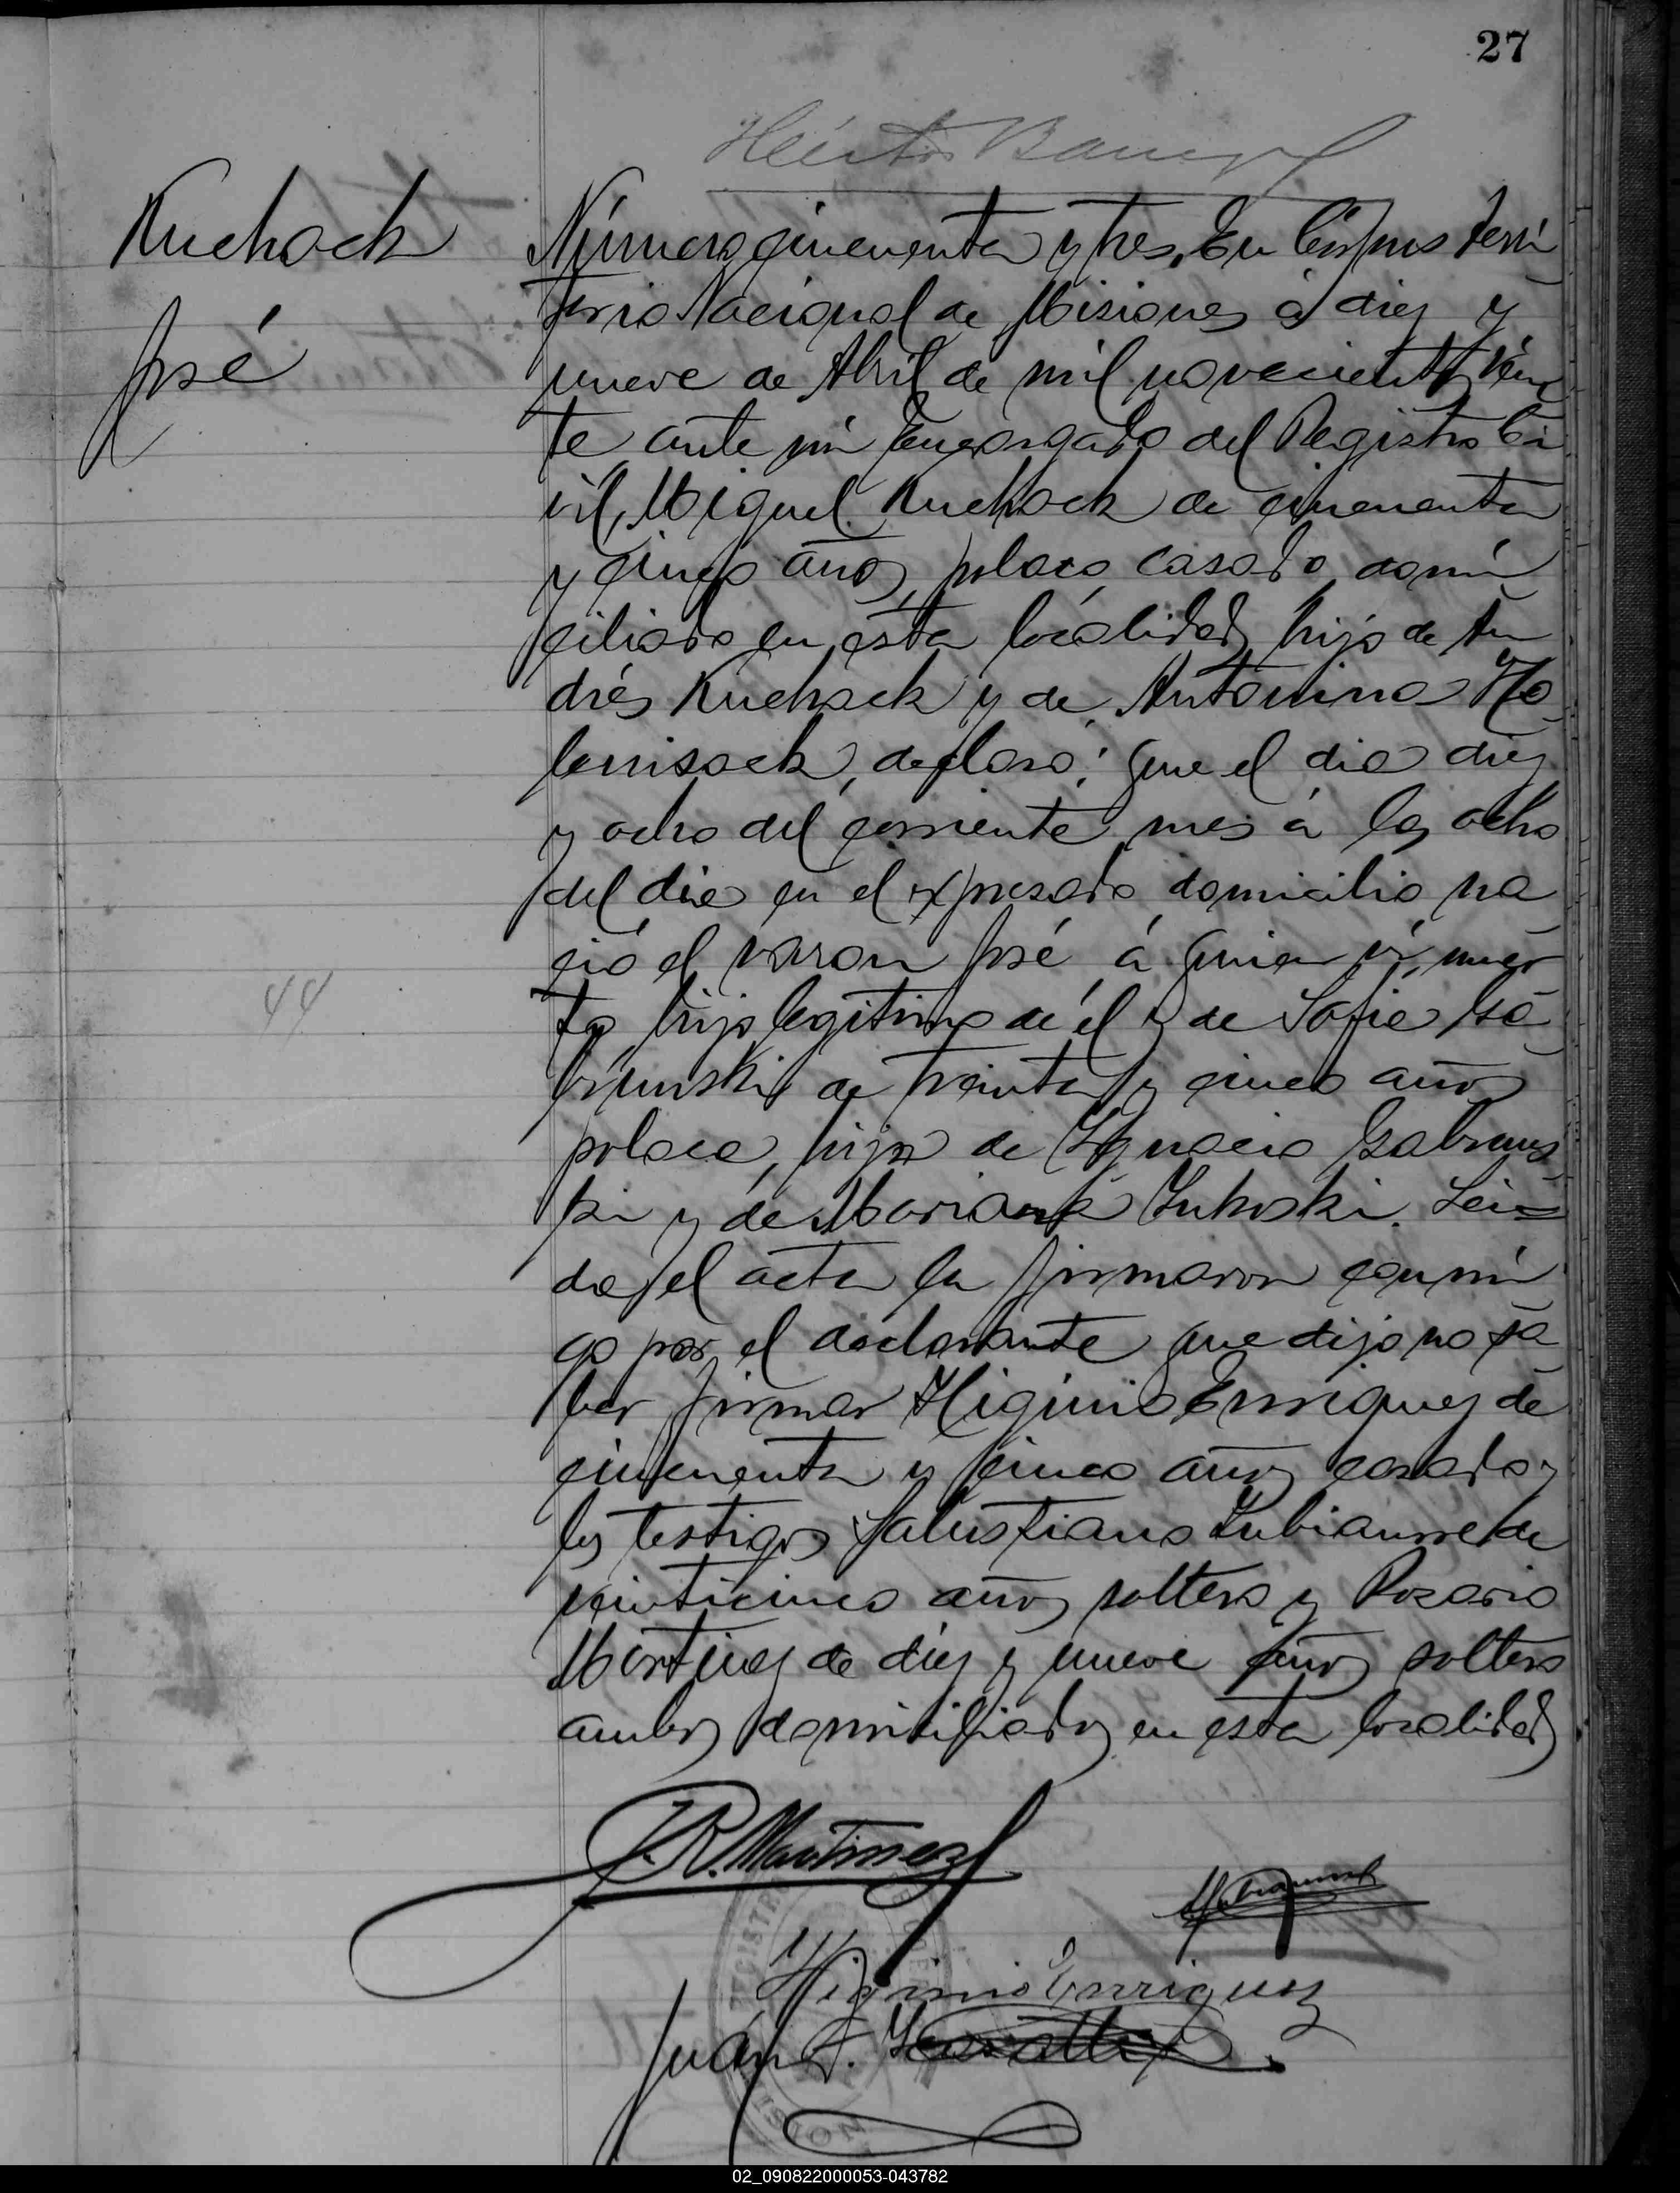 27
Kuchack
José
44
Número cincuenta y tres. En Corpus Terri
torio Nacional de Misiones á diez y
nueve de Abril de mil novecientos vein
te ante mí Encargado del Registro Ci
vil, Miguel Kuchack de cincuenta
y cinco años, polaco, casado, domi
ciliado en ésta localidad, hijo de An
drés Kuchack y de Antonina Ho
lenisack, declaró: Que el dia diez
y ocho del corriente mes á las ocho
del dia en el expresado domicilio na
ció el varon José á quien ví, muer
to, hijo legitimo de él y de Sofia Isa
brunski de treinta y cinco años
polaca, hija de Ignacio Isabruns
ki y de Mariana Lukoski. Lei=
da el acta la firmaron conmi
go por el declarante que dijo no sa
ber firmar Higinio Enriquez de
cincuenta y cinco años casado y
los testigos Salustiano Lubiaurre de
veinticinco años soltero y Rosario
Martinez de diez y nueve años soltero
ambos domiciliados en esta localidad
J. R. Martinez
Higinio Enriquez
Juan F.
02_090822000053-043782